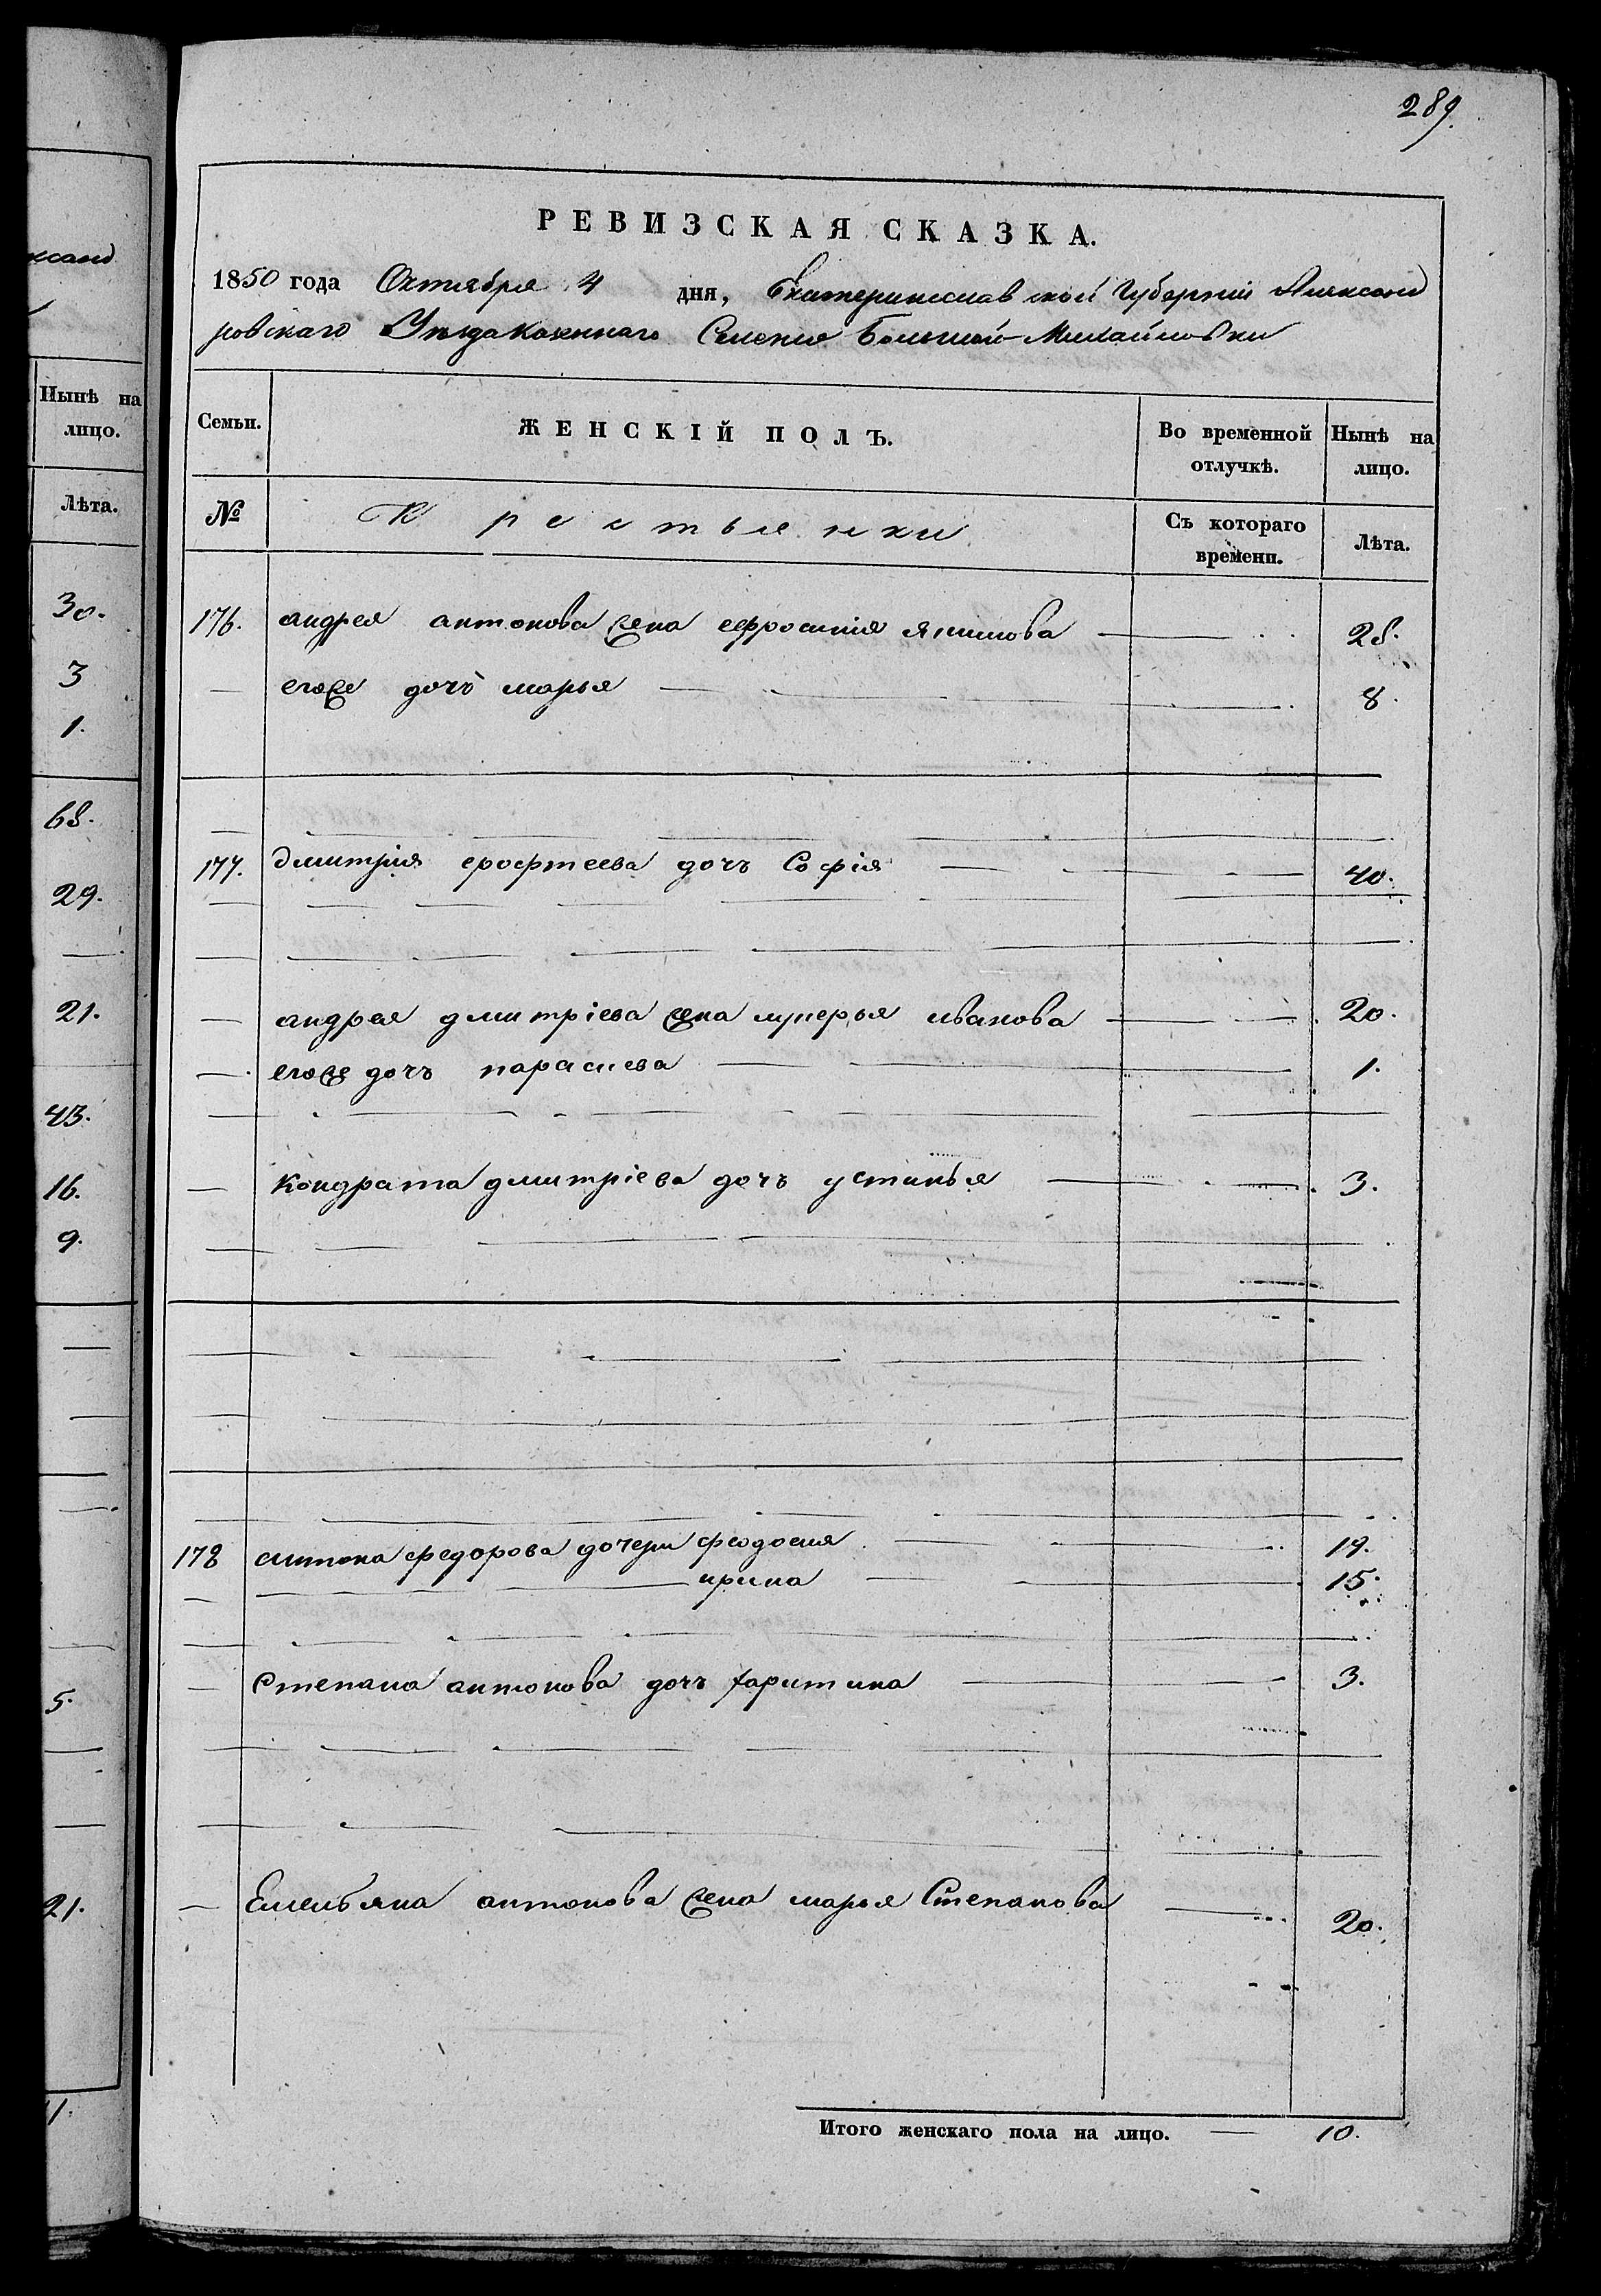 ксанд
Нынѣ на
лицо.
Лѣта.
30.
3
1.
68.
29.
21.
43.
16.
9.
5.
21.
11.
289.
РЕВИЗСКАЯ СКАЗКА.
1850 года Октября 4 дня, Екатеринославской Губерніи Александ
ровскаго Уѣзда Казеннаго Селенія Большой-Михайловки
Семьи. ЖЕНСКІЙ ПОЛЪ. Во временной отлучкѣ. Нынѣ на лицо.
№ Крестьянки Съ котораго времени. Лѣта.
176. андрея антонова жена ефросинія якимова 28.
егоже дочь марья 8.
177. дмитрія ерофтеева дочь Софія 40.
андрея дмитріева жена лукерья иванова 20.
егоже дочь парасцева 1.
кондрата дмитріева дочь устинья 3.
178 антона федорова дочери феодосия 19.
ирина 15.
степана антонова дочь харитина 3.
Емельяна антонова жена марья Степанова 20.
Итого женскаго пола на лицо. 10.